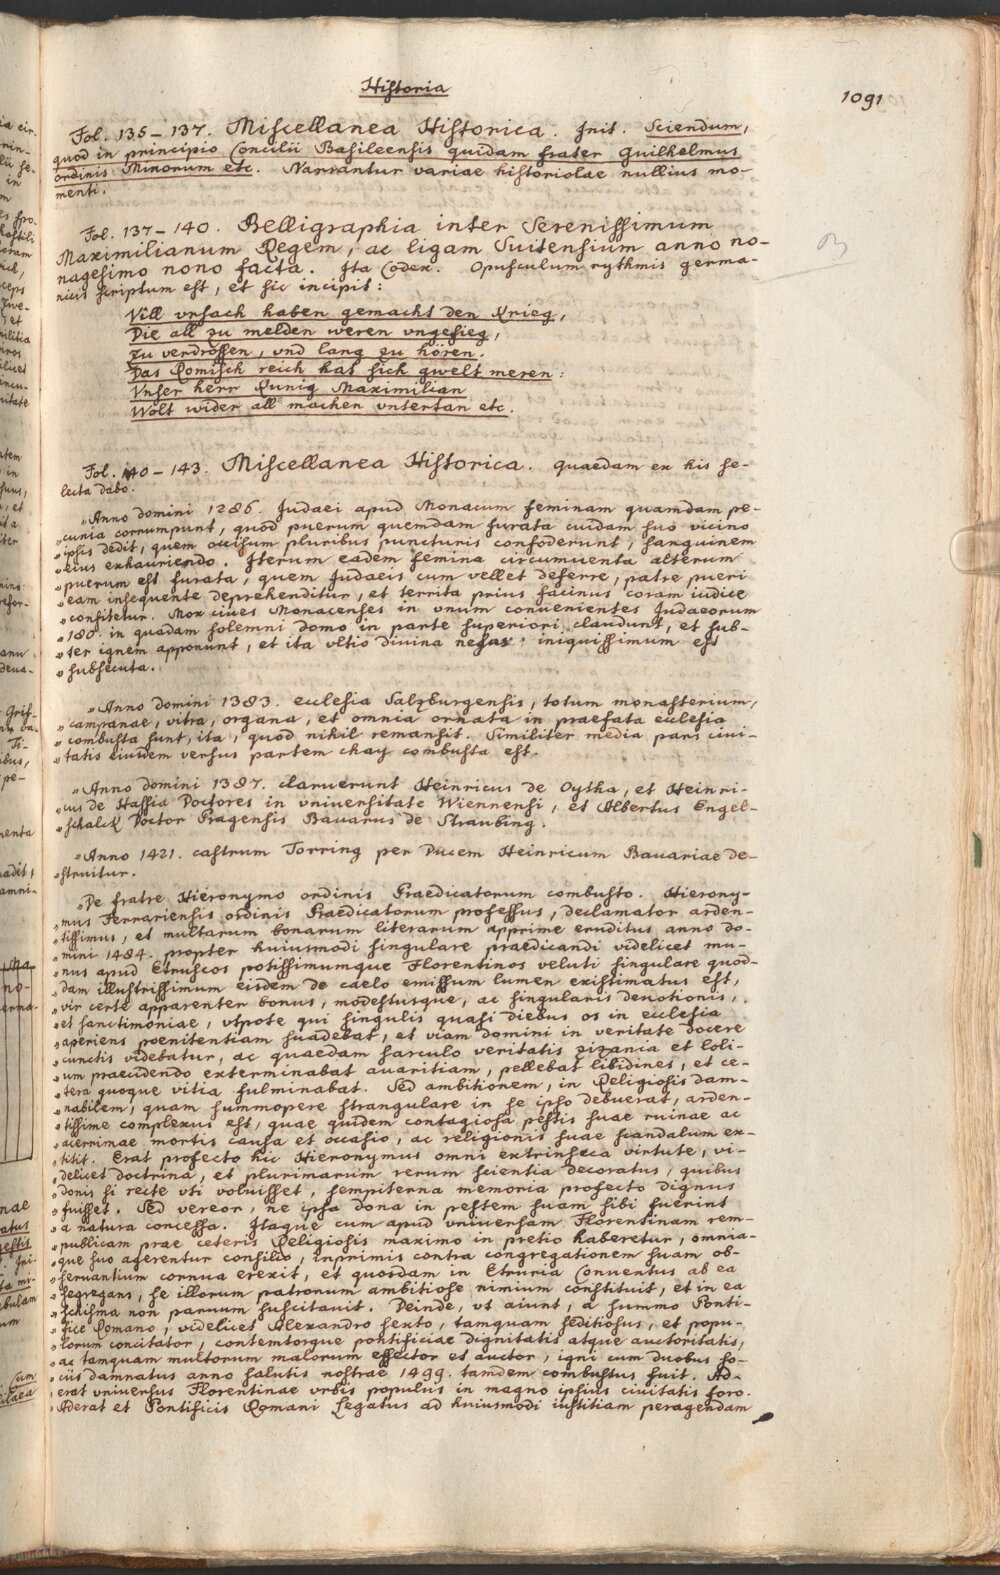 Historia
1091
Fol. 135–137. Miscellanea Historica. Init. Sciendum,
quod in principio Concilii Basileensis quidam frater Guilhelmus
ordinis Minorum etc. Narrantur variae historiolae nullius mo-
menti.
Fol. 137–140. Belligraphia inter Serenissimum
Maximilianum Regem, ac ligam Suitensium anno no-
nagesimo nono facta. Ita Codex. Opusculum rythmis germa-
nicis scriptum est, et sic incipit:
Vill vrsach haben gemacht den Krieg,
Die all zu melden weren vngefieg,
zu verdrossen, vnd lang zu hören.
Das Romisch reich hat sich gwelt meren:
Vnser herr Kunig Maximilian
Wolt wider all machen vntertan etc.
Fol. 140–143. Miscellanea Historica. quaedam ex his se-
lecta dabo.
„Anno domini 1286. Judaei apud Monacum feminam quamdam pe-
„cunia corrumpunt, quod puerum quemdam furata cuidam suo vicino
„ipsis dedit, quem occisum pluribus puncturis confoderunt, sanguinem
„eius exhauriendo. Iterum eadem femina circumuenta alterum
„puerum est furata, quem Judaeis cum vellet deferre, patre pueri
„eam insequente deprehenditur, et territa prius facinus coram iudice
„confitetur. Mox ciues Monacenses in vnum conuenientes Judaeorum
„180. in quadam solemni domo in parte superiori claudunt, et sub-
„ter ignem apponunt, et ita vltio diuina nefas iniquissimum est
„subsecuta.
„Anno domini 1383. ecclesia Salzburgensis, totum monasterium,
„campanae, vitra, organa, et omnia ornata in praefata ecclesia
„combusta sunt, ita, quod nihil remansit. Similiter media pars ciui-
„tatis eiusdem versus partem chay combusta est.
„Anno domini 1387. claruerunt Heinricus de Oytha, et Heinri-
„cus de Hassia Doctores in vniuersitate Wiennensi, et Albertus Engel-
„schalck Doctor Pragensis Bauarus de Straubing.
„Anno 1421. castrum Torring per Ducem Heinricum Bauariae de-
„struitur.
„De fratre Hieronymo ordinis Praedicatorum combusto. Hierony-
„mus Ferrariensis ordinis Praedicatorum professus, declamator arden-
„tissimus, et multarum bonarum literarum apprime eruditus anno do-
„mini 1484. propter huiusmodi singulare praedicandi videlicet mu-
„nus apud Etruscos potissimumque Florentinos veluti singulare quod-
„dam illustrissimum eisdem de caelo emissum lumen existimatus est,
„vir certe apparenter bonus, modestusque, ac singularis deuotionis,
„et sanctimoniae, vtpote qui singulis quasi diebus os in ecclesia
„aperiens poenitentiam suadebat, et viam domini in veritate docere
„cunctis videbatur, ac quaedam sarculo veritatis zizania et loli-
„um praecidendo exterminabat auaritiam, pellebat libidines, et ce-
„tera quoque vitia fulminabat. Sed ambitionem, in Religiosis dam-
„nabilem, quam summopere strangulare in se ipso debuerat, arden-
„tissime complexus est, quae quidem contagiosa pestis suae ruinae ac
„acerrimae mortis causa et occasio, ac religionis suae scandalum ex-
„titit. Erat profecto hic Hieronymus omni extrinseca virtute, vi-
„delicet doctrina, et plurimarum rerum scientia decoratus, quibus
„donis si recte vti voluisset, sempiterna memoria profecto dignus
„fuisset. Sed vereor, ne ipsa dona in pestem suam sibi fuerint
„a natura concessa. Itaque cum apud vniuersam Florentinam rem-
„publicam prae ceteris Religiosis maximo in pretio haberetur, omnia-
„que suo agerentur consilio, inprimis contra congregationem suam ob-
„seruantium cornua erexit, et quosdam in Etruria Conuentus ab ea
„segregans, se illorum patronum ambitiose nimium constituit, et in ea
„schisma non paruum suscitauit. Deinde, vt aiunt, a summo Ponti-
„fice Romano, videlicet Alexandro sexto, tamquam seditiosus, et popu-
„lorum concitator, contemtorque pontificiae dignitatis atque auctoritatis,
„ac tamquam multorum malorum effector et auctor, igni cum duobus so-
„ciis damnatus anno salutis nostrae 1499. tamdem combustus fuit. Ad-
„erat vniuersus Florentinae vrbis populus in magno ipsius ciuitatis foro.
„Aderat et Pontificis Romani Legatus ad huiusmodi iustitiam peragendam